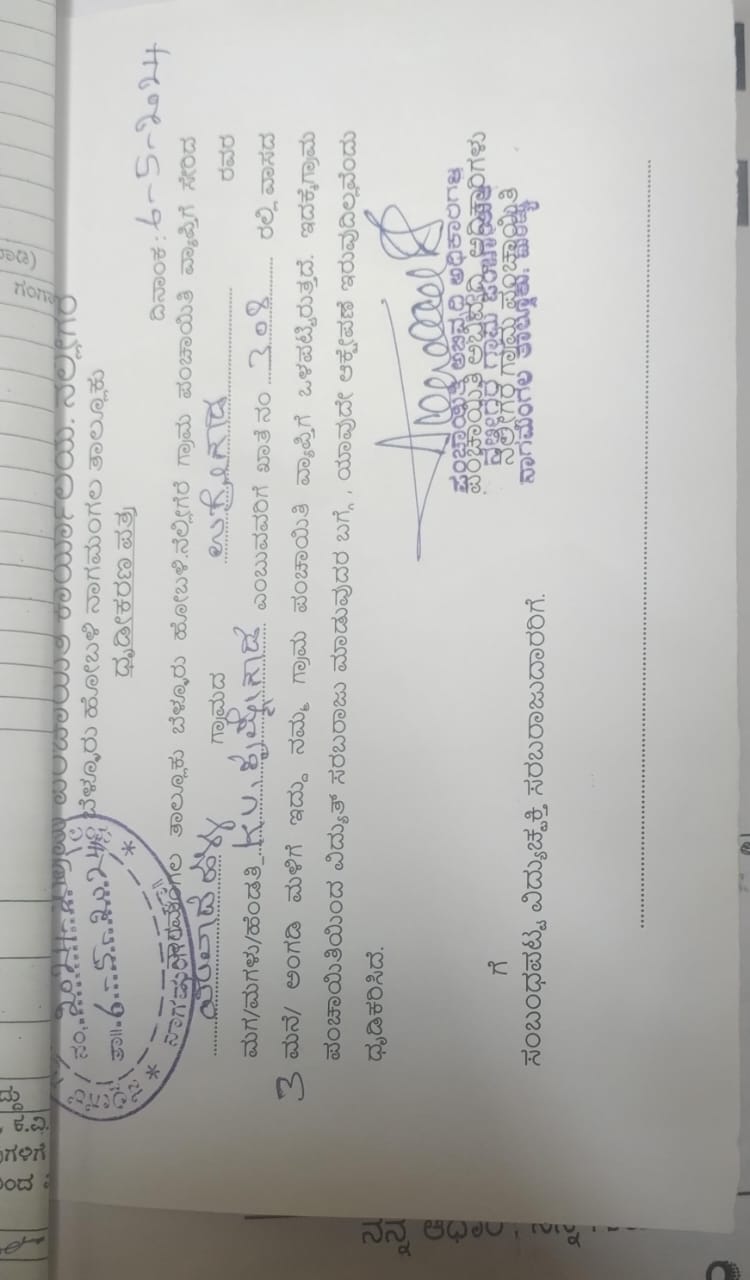 ಗ್ರಾಮ ಪಂಚಾಯಿತಿ ಕಾರ್ಯಾಲಯ, ನೆಲ್ಲೀಗೆರೆ
ಬೆಳ್ಳೂರು ಹೋಬಳಿ ನಾಗಮಂಗಲ ತಾಲ್ಲೂಕು
ದಿನಾಂಕ: 6-5-2024
ಧೃಡೀಕರಣ ಪತ್ರ
ನಾಗಮಂಗಲ ತಾಲ್ಲೂಕು ಬೆಳ್ಳೂರು ಹೋಬಳಿ ನೆಲ್ಲೀಗೆರೆ ಗ್ರಾಮ ಪಂಚಾಯಿತಿ ವ್ಯಾಪ್ತಿಗೆ ಸೇರಿದ
ಗ್ರಾಮದ ರವರ
ಮಗ/ಮಗಳು/ಹೆಂಡತಿ ಎಂಬುವವರಿಗೆ ಖಾತೆ ನಂ 308 ರಲ್ಲಿ ವಾಸದ
3 ಮನೆ/ ಅಂಗಡಿ ಮಳಿಗೆ ಇದ್ದು ನಮ್ಮ ಗ್ರಾಮ ಪಂಚಾಯಿತಿ ವ್ಯಾಪ್ತಿಗೆ ಒಳಪಟ್ಟಿರುತ್ತದೆ. ಇದಕ್ಕೆ ಗ್ರಾಮ
ಪಂಚಾಯಿತಿಯಿಂದ ವಿದ್ಯುತ್ ಸರಬರಾಜು ಮಾಡುವುದರ ಬಗ್ಗೆ, ಯಾವುದೇ ಆಕ್ಷೇಪಣೆ ಇರುವುದಿಲ್ಲವೆಂದು
ಧೃಡಿಕರಿಸಿದೆ.
ಪಂಚಾಯಿತಿ ಅಭಿವೃದ್ಧಿ ಅಧಿಕಾರಿಗಳು
ನೆಲ್ಲೀಗೆರೆ ಗ್ರಾಮ ಪಂಚಾಯಿತಿ
ನಾಗಮಂಗಲ ತಾಲ್ಲೂಕು, ಮಂಡ್ಯ
ಗೆ
ಸಂಬಂಧಪಟ್ಟ ವಿದ್ಯುಚ್ಛಕ್ತಿ ಸರಬರಾಜುದಾರರಿಗೆ.